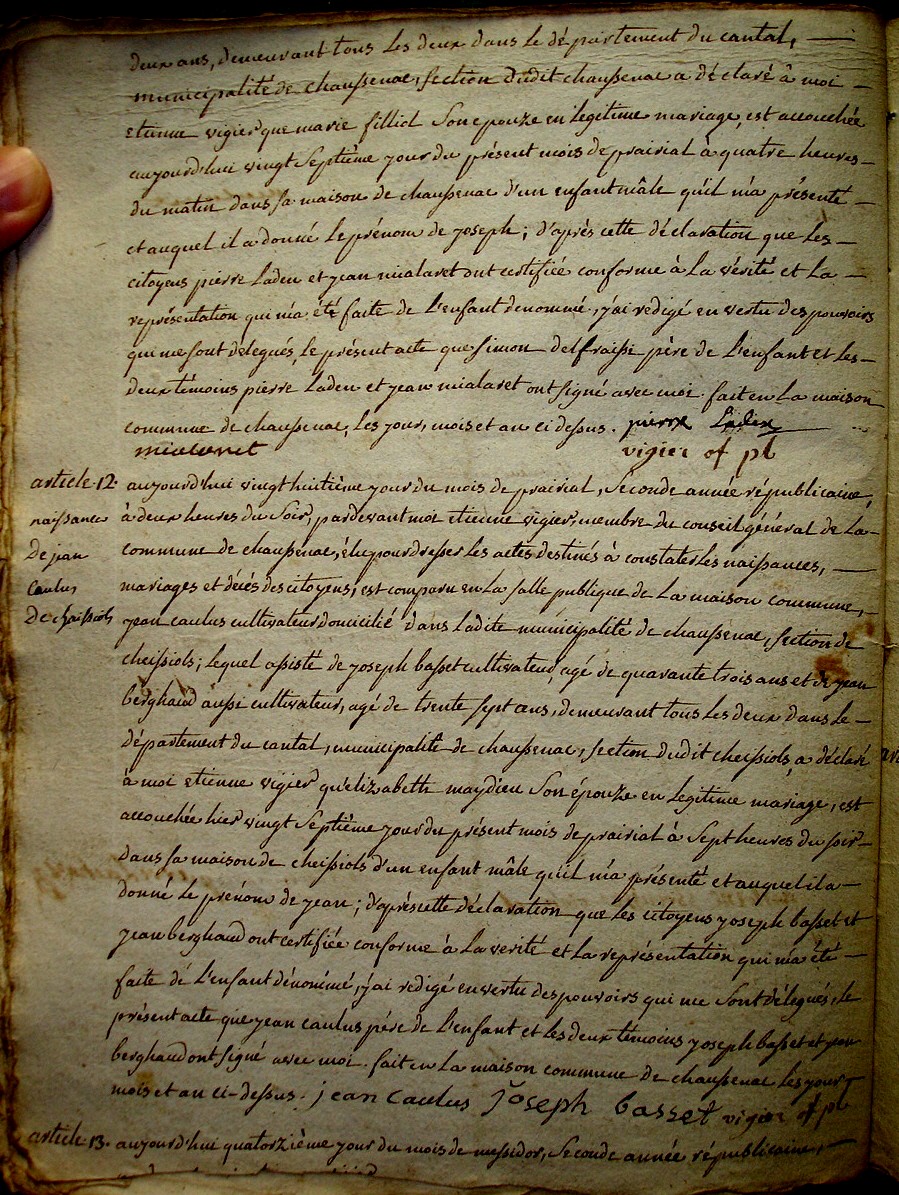 deux ans, demeurant tous les deux dans le département du cantal, —
municipalité de chaussenac, section dudit chaussenac a déclaré à moi —
etienne vigier que marie filliol son epouze en légitime mariage, est accouchée
aujourd'hui vingt septième jour du présent mois de prairial à quatre heures —
du matin dans sa maison de chaussenac d'un enfant mâle qu'il m'a présenté —
et auquel il a donné le prénom de joseph ; d'après cette déclaration que les —
citoyens pierre Laden et jean mialaret ont certifiée conforme à la vérité et la —
représentation qui m'a été faite de l'enfant denommé, j'ai redigé en vertu des pouvoirs
qui me sont délegués, le présent acte que simon delfraissi père de l'enfant et les —
deux témoins pierre Laden et jean mialaret ont signé avec moi. fait en la maison
commune de chaussenac, les jour, mois et an ci dessus. pierre Laden
mialaret vigier of pl
article 12. aujourd'hui vingt huitième jour du mois de prairial, seconde année républicaine,
naissance à deux heures du soir, pardevant moi etienne vigier, membre du conseil général de la —
de jean commune de chaussenac, élu pour dresser les actes destinés à constater les naissances, —
caulus mariages et décés des citoyens, est comparu en la salle publique de la maison commune, —
de cheissiols jean caulus cultivateur domicilié dans ladite municipalité de chaussenac, section de
cheissiols ; lequel assisté de joseph basset cultivateur, agé de quarante trois ans et de jean
berghaud aussi cultivateur, agé de trente sept ans, demeurant tous les deux dans le —
département du cantal, municipalité de chaussenac, section dudit cheissiols, a déclaré
à moi etienne vigier qu'elizabeth maydieu son épouze en legitime mariage, est
accouchée hier vingt septième jour du présent mois de prairial à sept heures du soir —
dans sa maison de cheissiols d'un enfant mâle qu'il m'a présenté et auquel il a —
donné le prénom de jean ; d'après cette déclaration que les citoyens joseph basset et
jean berghaud ont certifiée conforme à la verité et la représentation qui m'a été —
faite de l'enfant dénommé, j'ai redigé en vertu des pouvoirs qui me sont délegués, le
présent acte que jean caulus père de l'enfant et les deux témoins joseph basset et jean
berghaud ont signé avec moi. fait en la maison commune de chaussenac les jour
mois et an ci-dessus. jean caulus joseph basset vigier of pl
article 13. aujourd'hui quatorzième jour du mois de messidor, seconde année républicaine, —